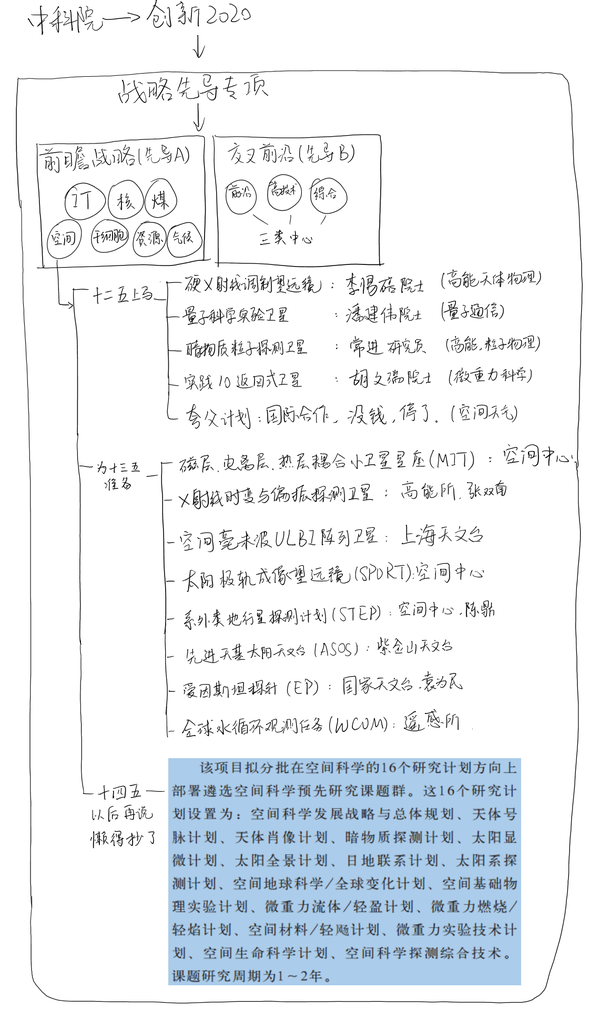 中科院→创新2020
战略先导专项
前瞻战略(先导A)
IT 核 煤
空间 干细胞 资源 气候
交叉前沿(先导B)
前沿 高技术 综合
三类中心
十二五上马
硬X射线调制望远镜：李惕碚院士 (高能天体物理)
量子科学实验卫星：潘建伟院士 (量子通信)
暗物质粒子探测卫星：常进研究员 (高能,粒子物理)
实践10返回式卫星：胡文瑞院士 (微重力科学)
夸父计划：国际合作，没钱，停了. (空间天气)
为十三五
准备
磁层、电离层、热层耦合小卫星星座(MIT)：空间中心
X射线时变与偏振探测卫星：高能所.张双南
空间毫米波ULBI阵列卫星：上海天文台
太阳极轨成像望远镜(SPORT):空间中心
系外类地行星探测计划(STEP)：空间中心.陈鼎
先进天基太阳天文台(ASOS)：紫金山天文台
爱因斯坦探针(EP)：国家天文台.袁为民
全球水循环观测任务(WCOM)：遥感所
十四五
以后再说
懒得抄了
该项目拟分批在空间科学的16个研究计划方向上
部署遴选空间科学预先研究课题群。这16个研究计
划设置为：空间科学发展战略与总体规划、天体号
脉计划、天体肖像计划、暗物质探测计划、太阳显
微计划、太阳全景计划、日地联系计划、太阳系探
测计划、空间地球科学/全球变化计划、空间基础物
理实验计划、微重力流体/轻盈计划、微重力燃烧/
轻焰计划、空间材料/轻飏计划、微重力实验技术计
划、空间生命科学计划、空间科学探测综合技术。
课题研究周期为1～2年。